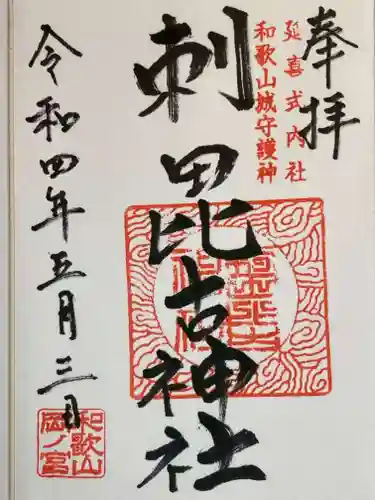 奉拝
延喜式内社
和歌山城守護神
刺毘古神社
令和四年五月三日
和歌山
岡ノ宮